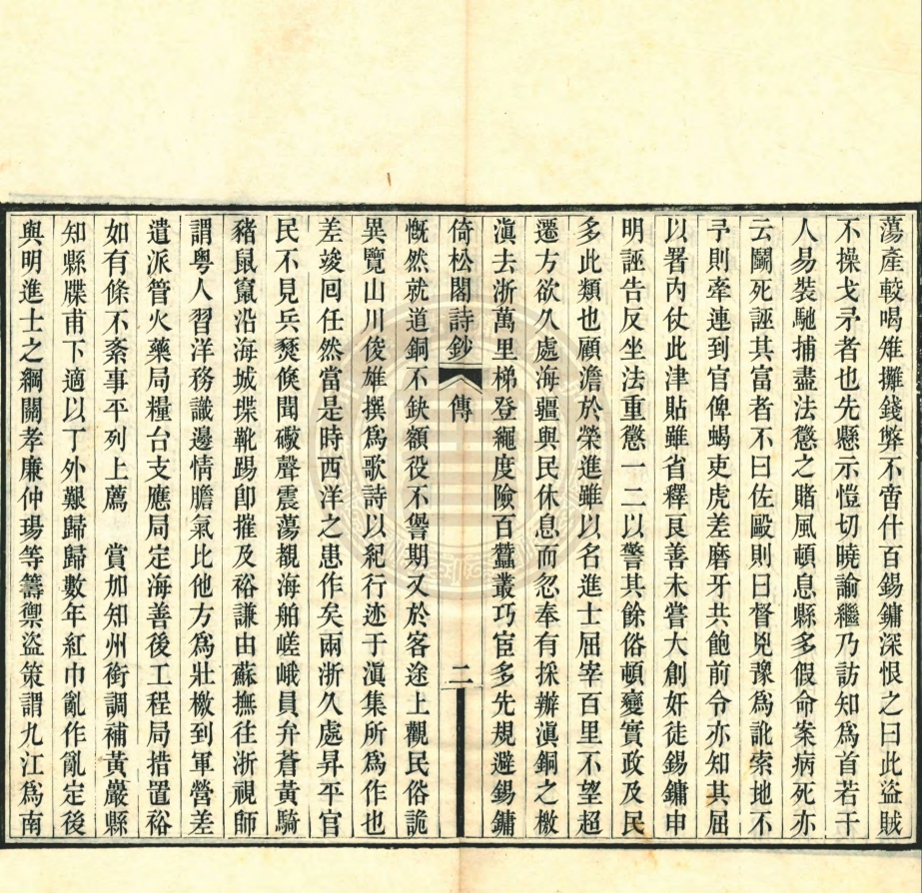 蕩產較喝雉攤錢弊不啻什百錫鏞深恨之曰此盜賊
不操戈矛者也先懸示愷切曉諭繼乃訪知為首若干
人易裝馳捕盡法懲之賭風頓息縣多假命案病死亦
云鬭死誣其富者不曰佐毆則曰督兇豫為訛索地不
予則牽連到官俾蝎吏虎差磨牙共飽前令亦知其屈
以署內仗此津貼雖省釋良善未嘗大創奸徒錫鏞申
明誣告反坐法重懲一二以警其餘俗頓變實政及民
多此類也顧澹於榮進雖以名進士屈宰百里不望超
遷方欲久處海疆與民休息而忽奉有採辦滇銅之檄
滇去浙萬里梯登繩度險百蠶叢巧宦多先規避錫鏞
倚松閣詩鈔 傳 二
慨然就道銅不缺額役不諐期又於客途上觀民俗詭
異覽山川俊雄撰為歌詩以紀行迹于滇集所為作也
差竣回任然當是時西洋之患作矣兩浙久處昇平官
民不見兵燹倏聞礮聲震蕩覩海舶嵯峨員弁蒼黃騎
豬鼠竄沿海城堞靴踢即摧及裕謙由蘇撫往浙視師
謂粵人習洋務識邊情膽氣比他方為壯檄到軍營差
遣派管火藥局糧台支應局定海善後工程局措置裕
如有條不紊事平列上薦 賞加知州銜調補黃巖縣
知縣牒甫下適以丁外艱歸歸數年紅巾亂作亂定後
與明進士之綱關孝廉仲瑒等籌禦盜策謂九江為南